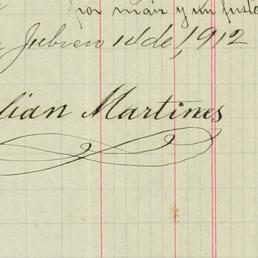 por mair y un fusto
Febrero 14 de 1,912
lian Martines